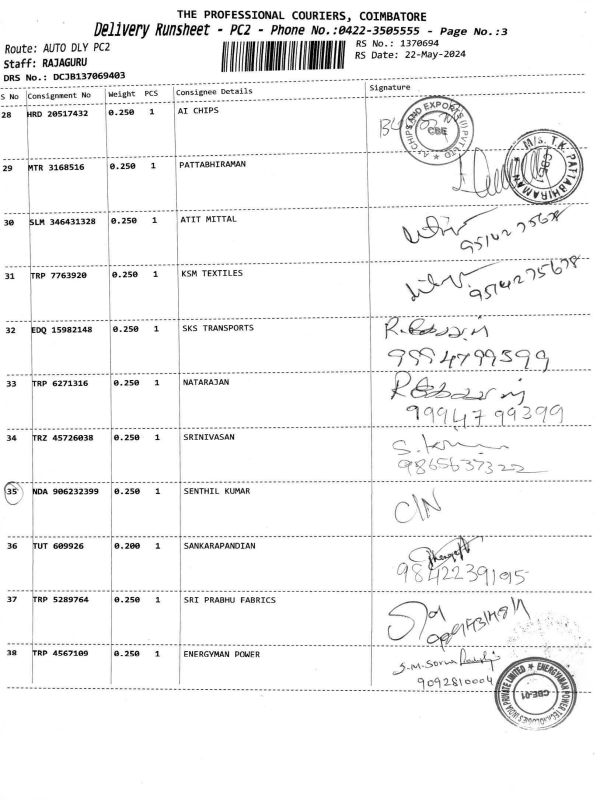 THE PROFESSIONAL COURIERS, COIMBATORE
Delivery Runsheet - PC2 - Phone No.:0422-3505555 - Page No.:3
Route: AUTO DLY PC2
RS No.: 1370694
Staff: RAJAGURU
RS Date: 22-May-2024
DRS No.: DCJB137069403
S No Consignment No Weight PCS Consignee Details Signature
28 HRD 20517432 0.250 1 AI CHIPS
CBE
29 MTR 3168516 0.250 1 PATTABHIRAMAN
M/s. T.K. PATTABHIRAMAN
CBE-1
30 SLM 346431328 0.250 1 ATIT MITTAL
9514275678
31 TRP 7763920 0.250 1 KSM TEXTILES
9514275678
32 EDQ 15982148 0.250 1 SKS TRANSPORTS
9994799399
33 TRP 6271316 0.250 1 NATARAJAN
9994799399
34 TRZ 45726038 0.250 1 SRINIVASAN
9865637322
35 NDA 906232399 0.250 1 SENTHIL KUMAR
C/N
36 TUT 609926 0.200 1 SANKARAPANDIAN
9842239195
37 TRP 5289764 0.250 1 SRI PRABHU FABRICS
38 TRP 4567109 0.250 1 ENERGYMAN POWER
9092810004
CBE-01